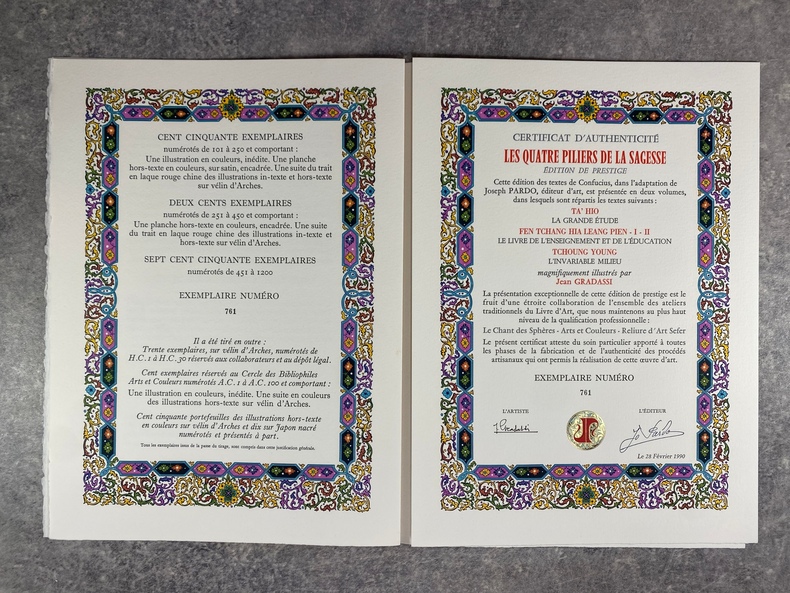 CENT CINQUANTE EXEMPLAIRES
numérotés de 101 à 250 et comportant :
Une illustration en couleurs, inédite. Une planche
hors-texte en couleurs, sur satin, encadrée. Une suite du trait
en laque rouge chine des illustrations in-texte et hors-texte
sur vélin d'Arches.
DEUX CENTS EXEMPLAIRES
numérotés de 251 à 450 et comportant :
Une planche hors-texte en couleurs, encadrée. Une suite
du trait en laque rouge chine des illustrations in-texte et
hors-texte sur vélin d'Arches.
SEPT CENT CINQUANTE EXEMPLAIRES
numérotés de 451 à 1200
EXEMPLAIRE NUMÉRO
761
Il a été tiré en outre :
Trente exemplaires, sur vélin d'Arches, numérotés de
H.C. 1 à H.C. 30 réservés aux collaborateurs et au dépôt légal.
Cent exemplaires réservés au Cercle des Bibliophiles
Arts et Couleurs numérotés A.C. 1 à A.C. 100 et comportant :
Une illustration en couleurs, inédite. Une suite en couleurs
des illustrations hors-texte sur vélin d'Arches.
Cent cinquante portefeuilles des illustrations hors-texte
en couleurs sur vélin d'Arches et dix sur Japon nacré
numérotés et présentés à part.
Tous les exemplaires issus de la passe du tirage, sont compris dans cette justification générale.
CERTIFICAT D'AUTHENTICITÉ
LES QUATRE PILIERS DE LA SAGESSE
ÉDITION DE PRESTIGE
Cette édition des textes de Confucius, dans l'adaptation de
Joseph PARDO, éditeur d'art, est présentée en deux volumes,
dans lesquels sont répartis les textes suivants :
TA' HIO
LA GRANDE ÉTUDE
FEN TCHANG HIA LEANG PIEN - I - II
LE LIVRE DE L'ENSEIGNEMENT ET DE L'ÉDUCATION
TCHOUNG YOUNG
L'INVARIABLE MILIEU
magnifiquement illustrés par
Jean GRADASSI
La présentation exceptionnelle de cette édition de prestige est le
fruit d'une étroite collaboration de l'ensemble des ateliers
traditionnels du Livre d'Art, que nous maintenons au plus haut
niveau de la qualification professionnelle :
Le Chant des Sphères - Arts et Couleurs - Reliure d'Art Sefer
Le présent certificat atteste du soin particulier apporté à toutes
les phases de la fabrication et de l'authenticité des procédés
artisanaux qui ont permis la réalisation de cette œuvre d'art.
EXEMPLAIRE NUMÉRO
761
L'ARTISTE
L'ÉDITEUR
J Gradassi
Jo Pardo
Le 28 Février 1990